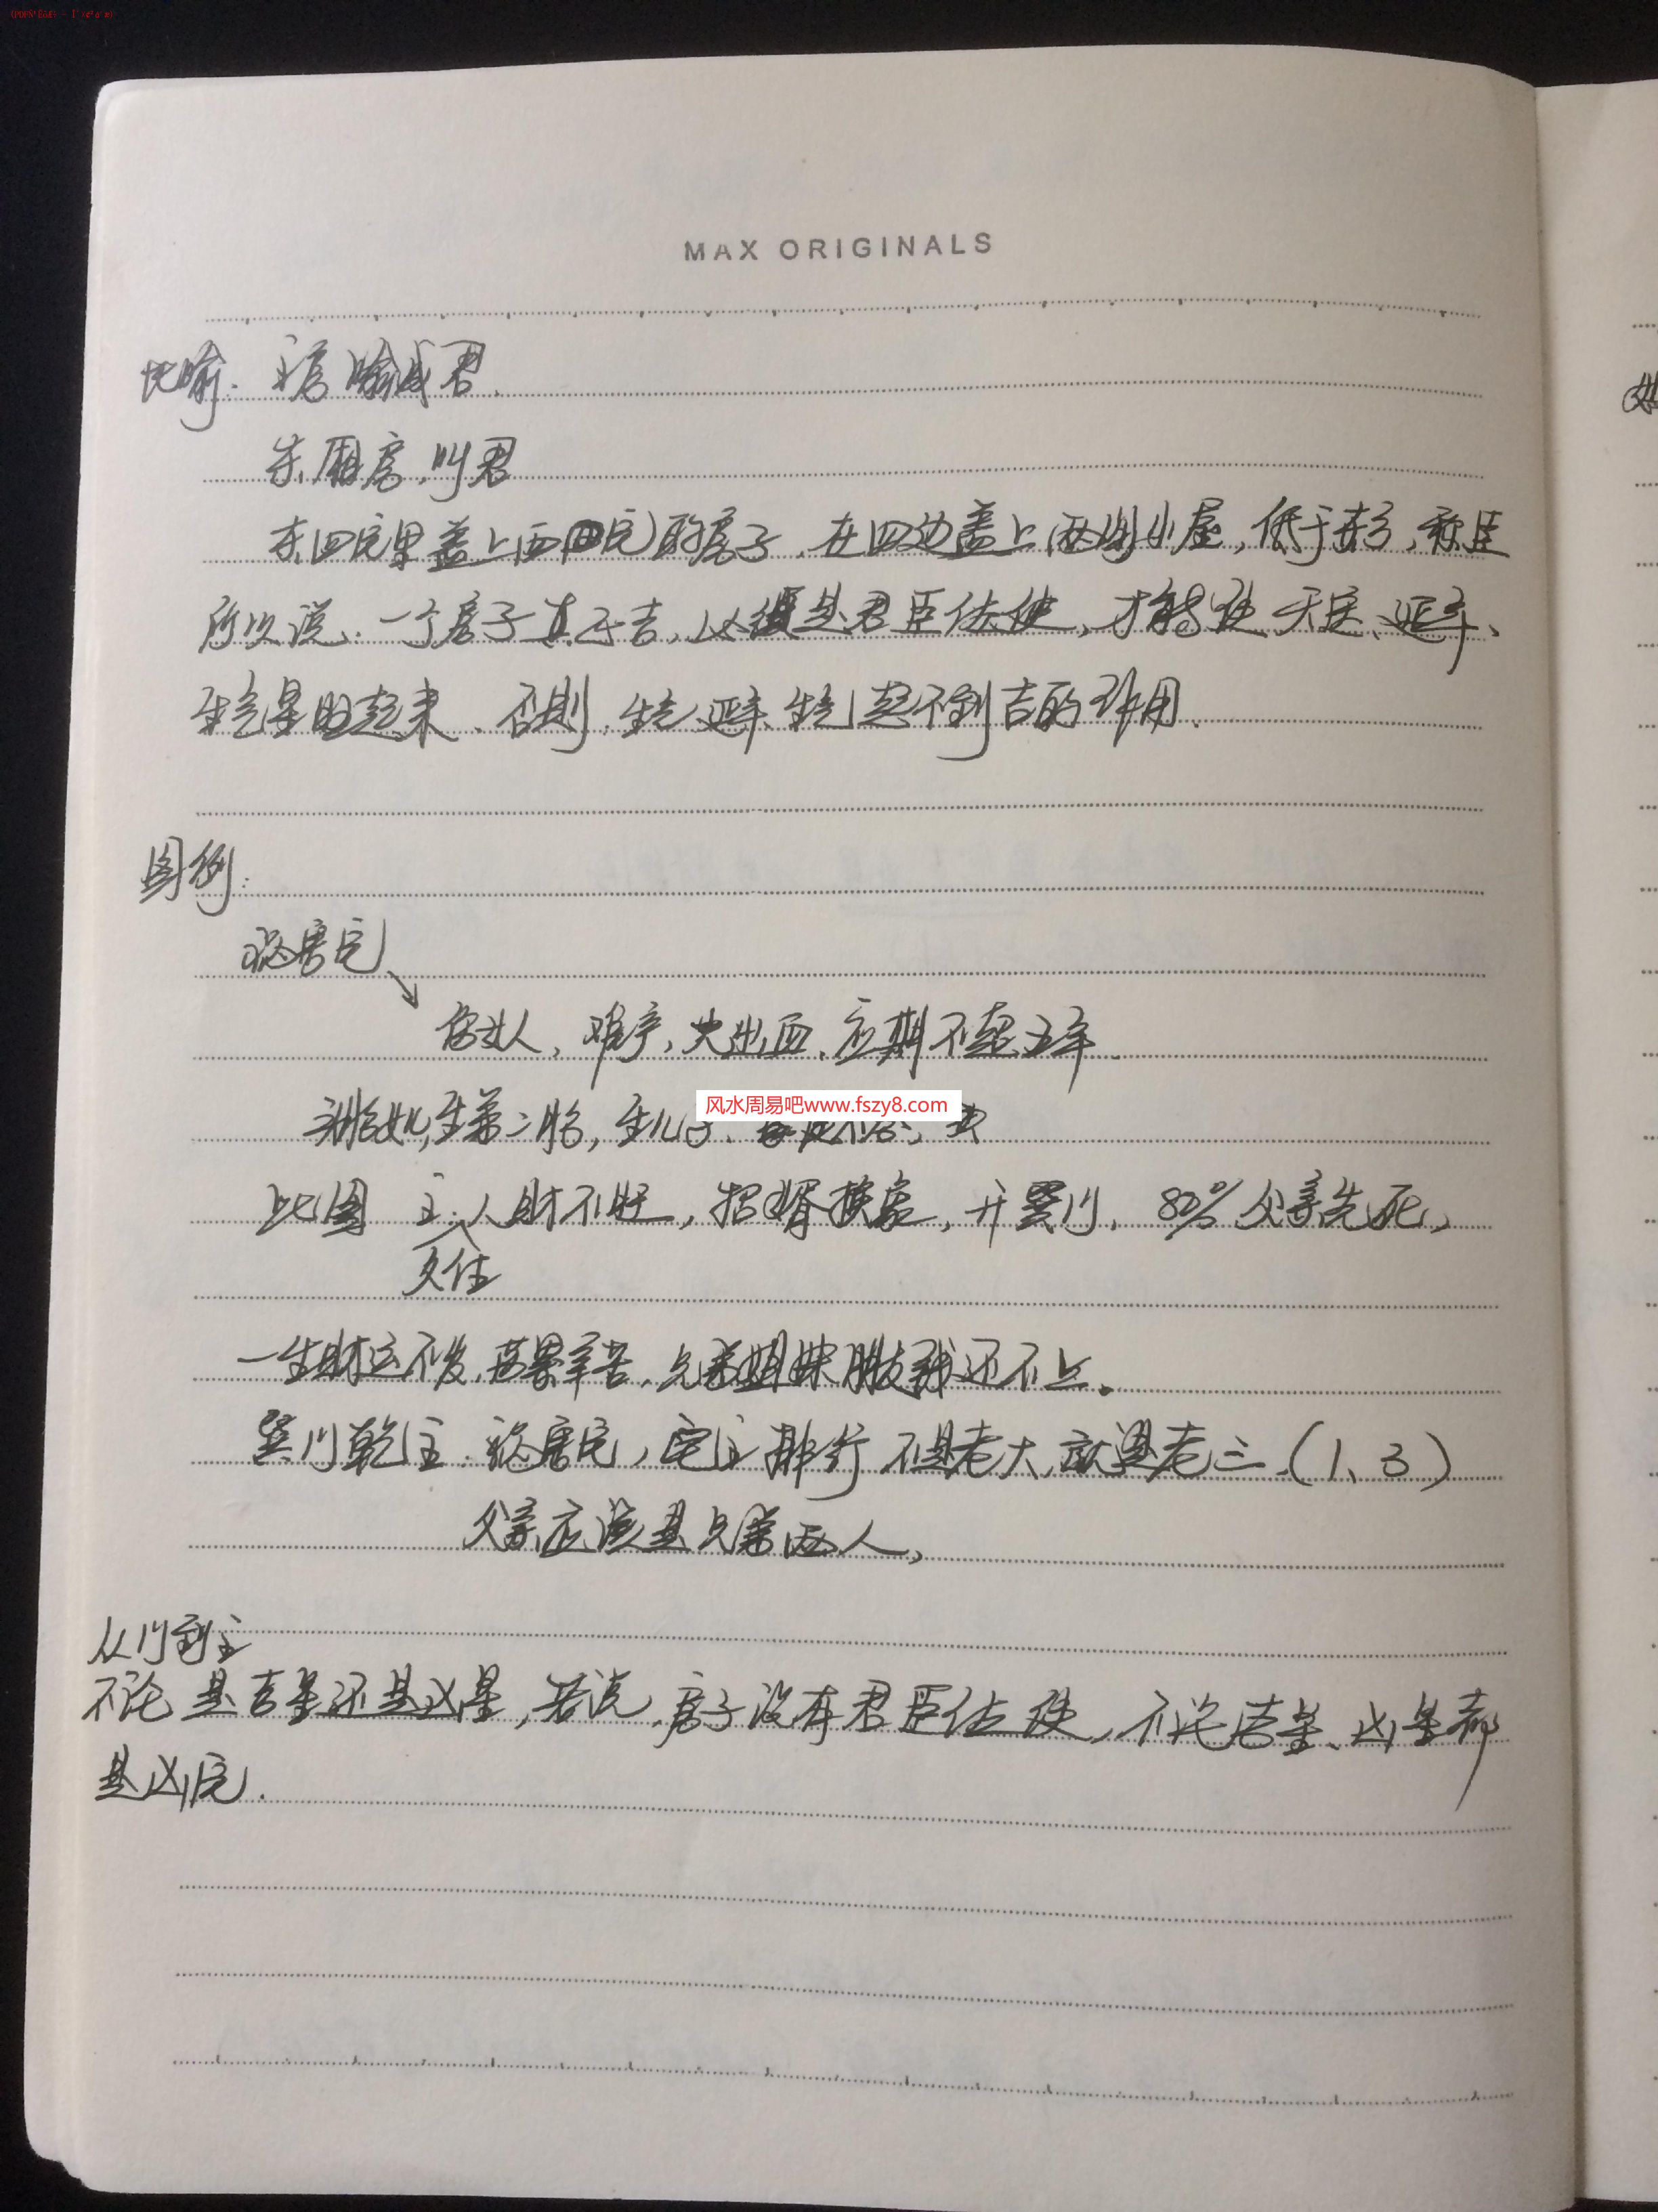 MAX ORIGINALS
比喻. 主房喻成君.
东厢房,叫君
东四宅里盖上西四宅的房子.在四边盖上两间小屋,低于东方,称臣
所以说、一个房子真正吉,必须是君臣佐使,才能使天医、延年、
生气星旺起来、否则,生气延年、生气起不到吉的作用.
图例:
祸害宅
伤女人,难产,大出血,应期不超五年.
生第二胎,生儿子、
风水周易吧www.fszy8.com
此图 主:人财不旺,招婿换家,开巽门,80%父亲先死,
久住
一生财运不发,劳累辛苦,兄弟姐妹朋友钱还不上.
巽门乾主.祸害宅,宅主排行不是老大,就是老三.(1、3)
父亲应该是兄弟两人,
从门到主
不论是吉星还是凶星,若说,房子没有君臣佐使,不论吉星、凶星都
是凶宅.